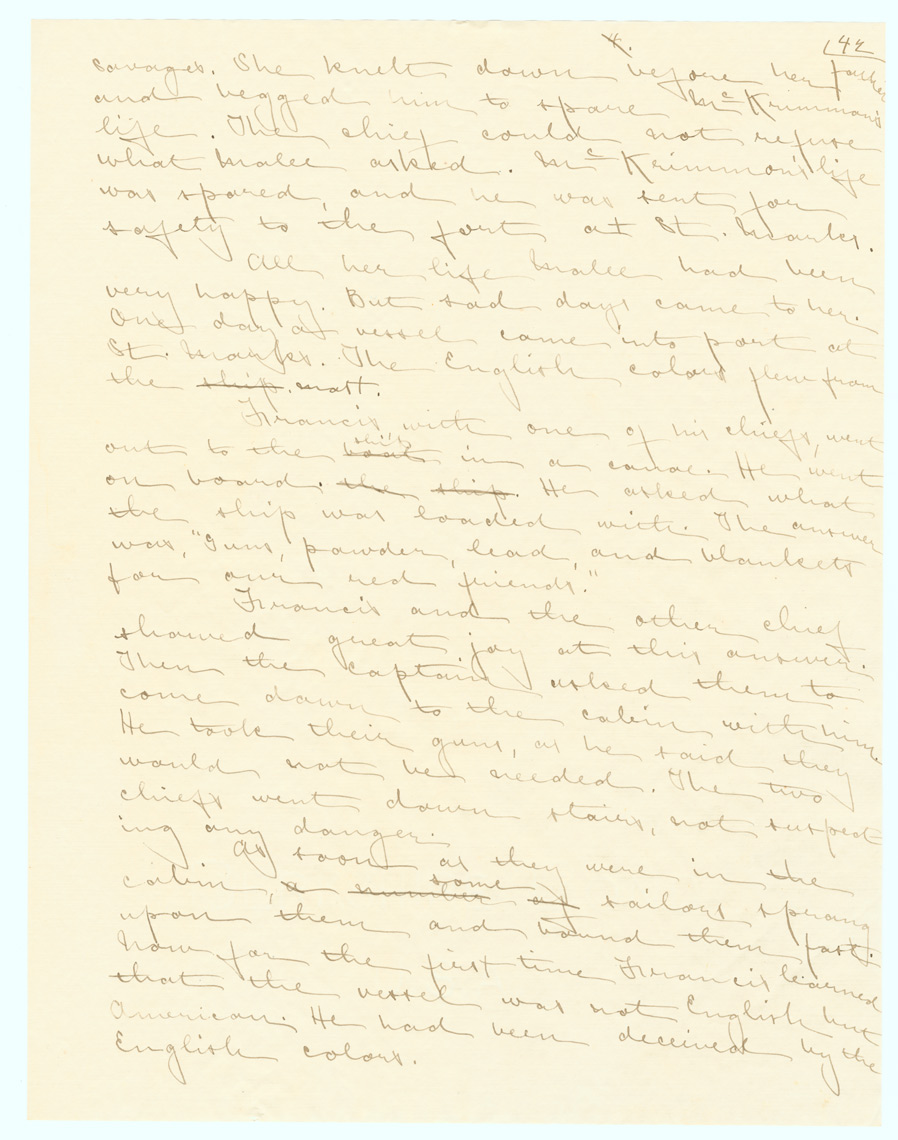 4. 42
savages. She knelt down before her father
and begged him to spare McKrimmon's
life. The chief could not refuse
what Malee asked. McKrimmon's life
was spared, and he was sent for
safety to the fort at St. Marks.
All her life Malee had been
very happy. But sad days came to her.
One day a vessel came into port at
St. Marks. The English colors flew from
the ship. mast.
Francis, with one of his chiefs, went
ship
out to the boat in a canoe. He went
on board. the ship. He asked what
the ship was loaded with. The answer
was, "Guns, powder, lead, and blankets
for our red friends."
Francis and the other chief
showed great joy at this answer.
Then the captain asked them to
come down to the cabin with him.
He took their guns, as he said they
would not be needed. The two
chiefs went down stairs, not suspect
ing any danger.
As soon as they were in the
some
cabin, a number of sailors sprang
upon them and bound them fast.
Now for the first time Francis learned
that the vessel was not English but
American. He had been deceived by the
English colors.